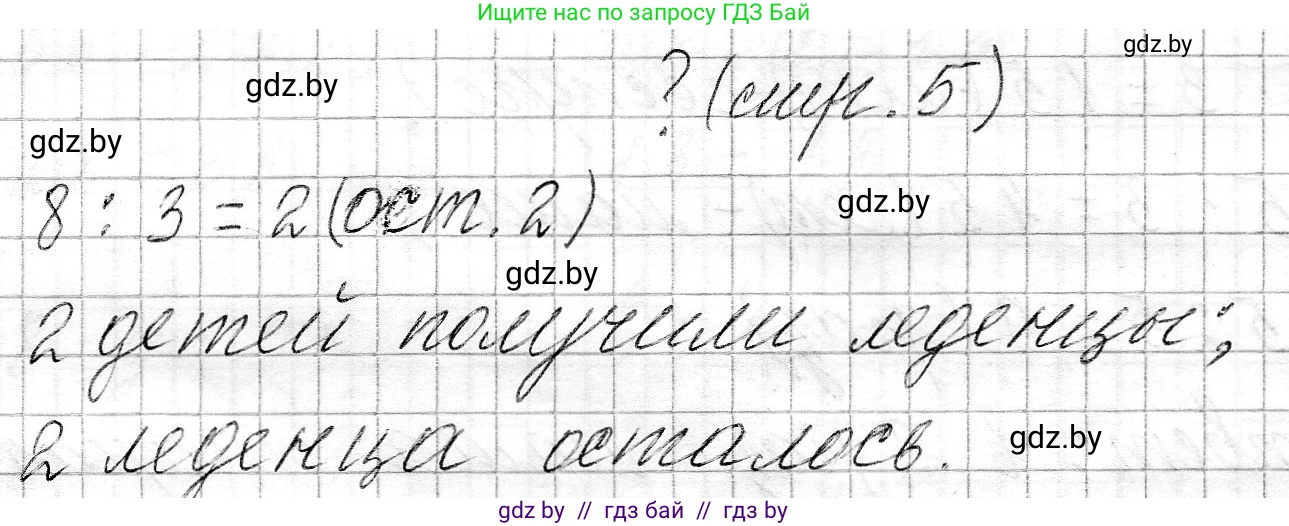 Ищите нас по запросу ГДЗ Бай
gdz.by
? (стр. 5)
gdz.by
gdz.by
8 : 3 = 2 (ост. 2)
gdz.by
gdz.by
2 детей получили леденцы;
2 леденца осталось.
gdz.by
gdz.by // гдз бай // гдз by